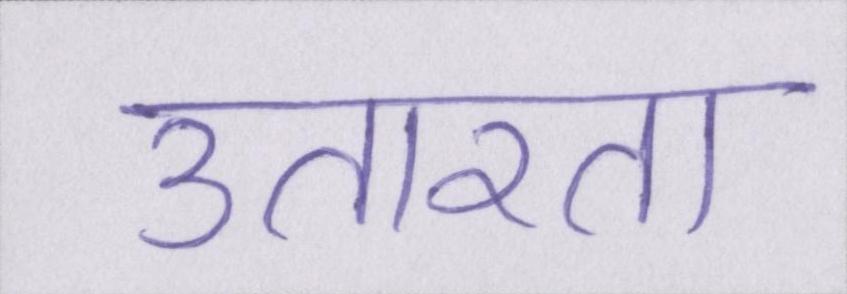 उतारता